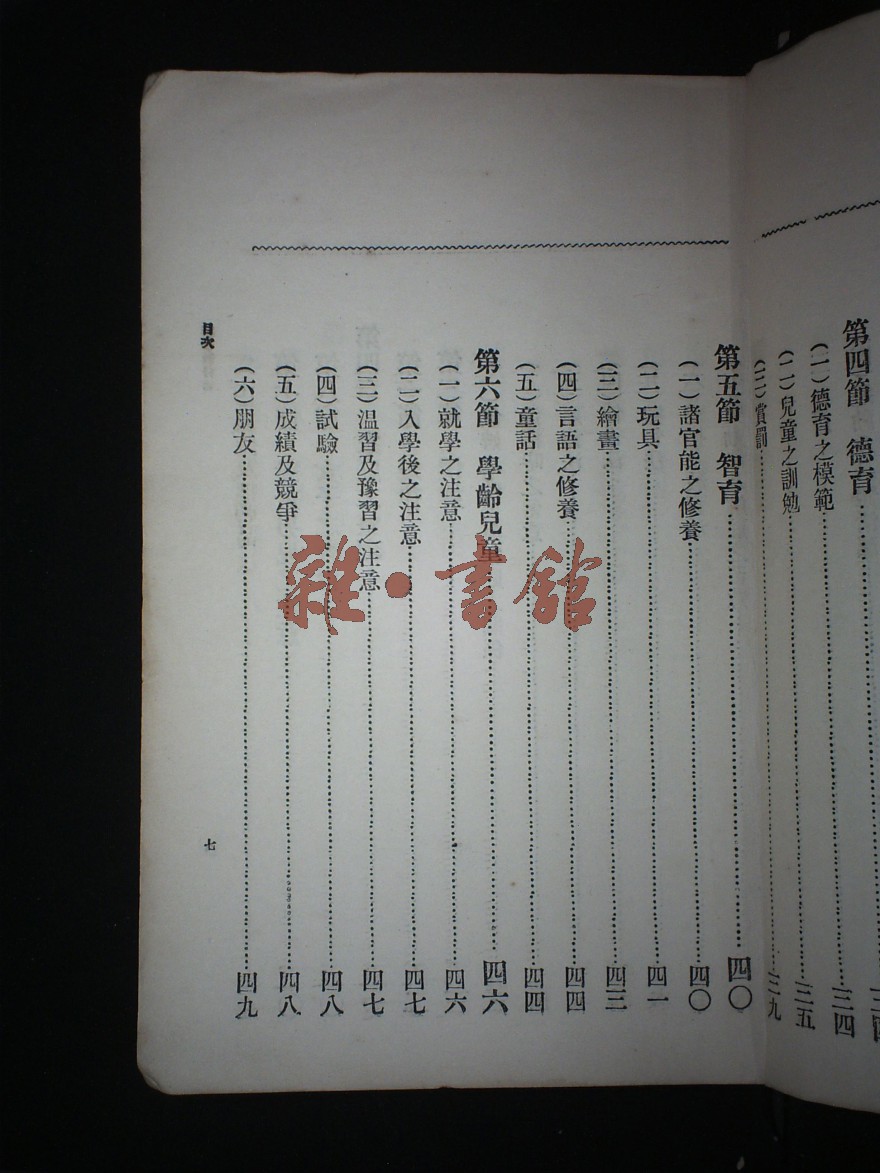 第四節 德育……三四
（一）德育之模範……三四
（二）兒童之訓勉……三五
（三）賞罰……三九
第五節 智育……四〇
（一）諸官能之修養……四〇
（二）玩具……四一
（三）繪畫……四三
（四）言語之修養……四四
（五）童話……四四
第六節 學齡兒童……四六
（一）就學之注意……四六
（二）入學後之注意……四七
（三）温習及豫習之注意……四七
（四）試驗……四八
（五）成績及競爭……四八
（六）朋友……四九
目次
七
雜·書館